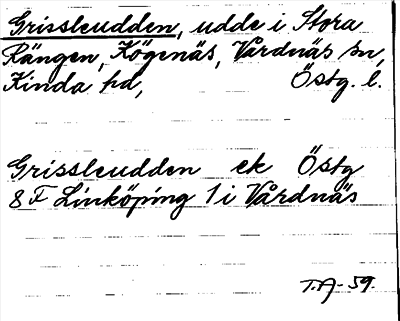 Grissleudden, udde i Stora
Rängen, Högenäs, Vårdnäs sn,
Kinda hd, Östg. l.
Grissleudden ek Östg
8 F Linköping 1 i Vårdnäs
T.A-59.